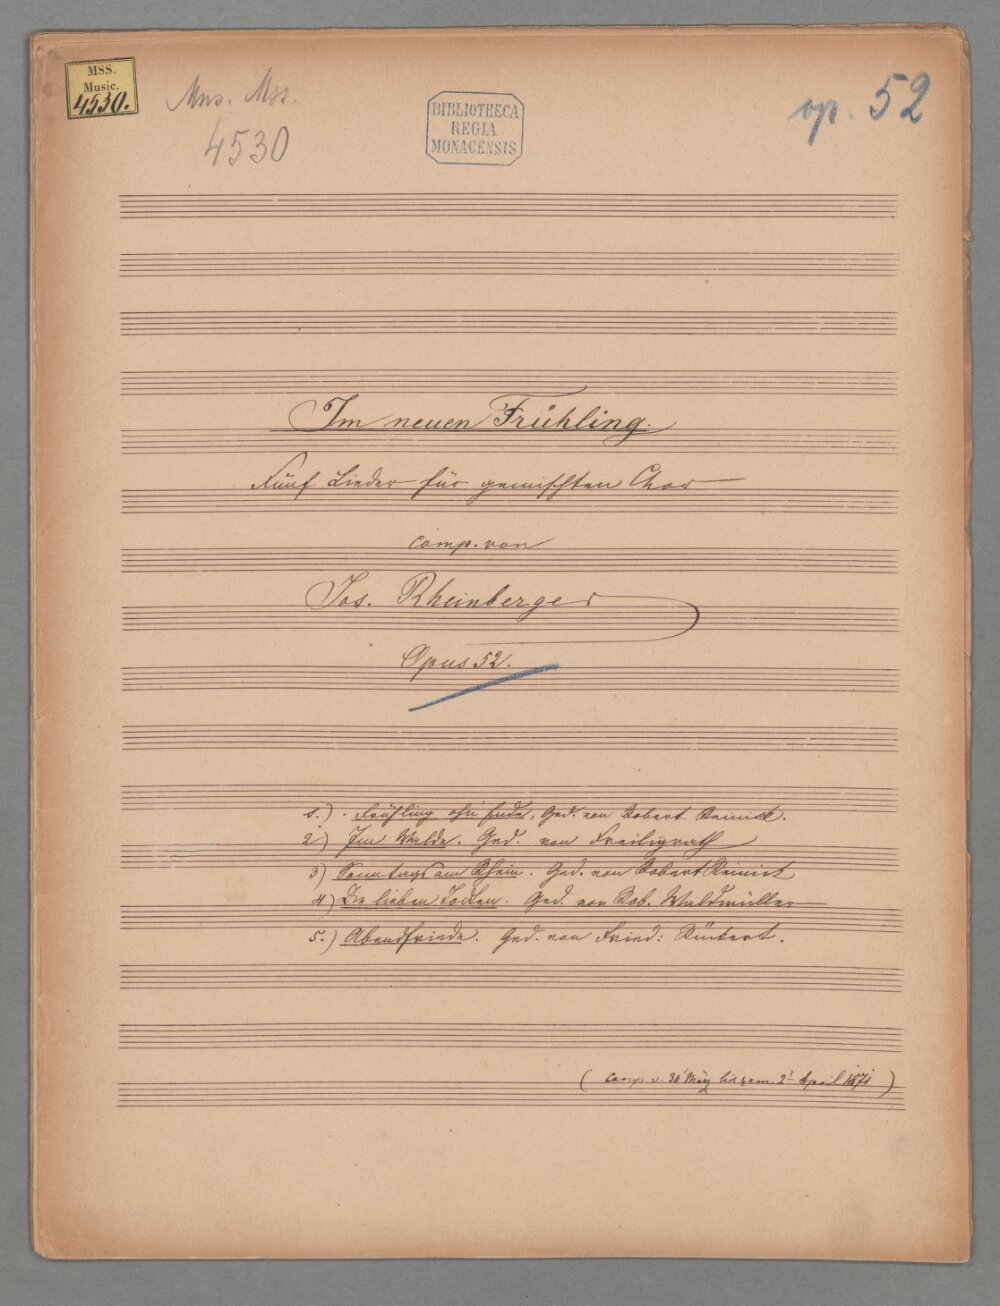 MSS.
Music.
4530.
Mus. Mss.
4530
BIBLIOTHECA
REGIA
MONACENSIS
op. 52
Im neuen Frühling.
Fünf Lieder für gemischten Chor
comp. von
Jos. Rheinberger
Opus 52.
1.) Frühling ohn' Ende, Ged. von Robert Reinick.
2) Im Walde. Ged. von Freiligrath
3) Sonntags am Rhein. Ged. von Robert Reinick
4) Die lieben Ged. von Rob. Waldmüller
5.) Abendfriede. Ged. von Fried: Rückert.
(comp. v. 30t März bis zum 2t April 1871)